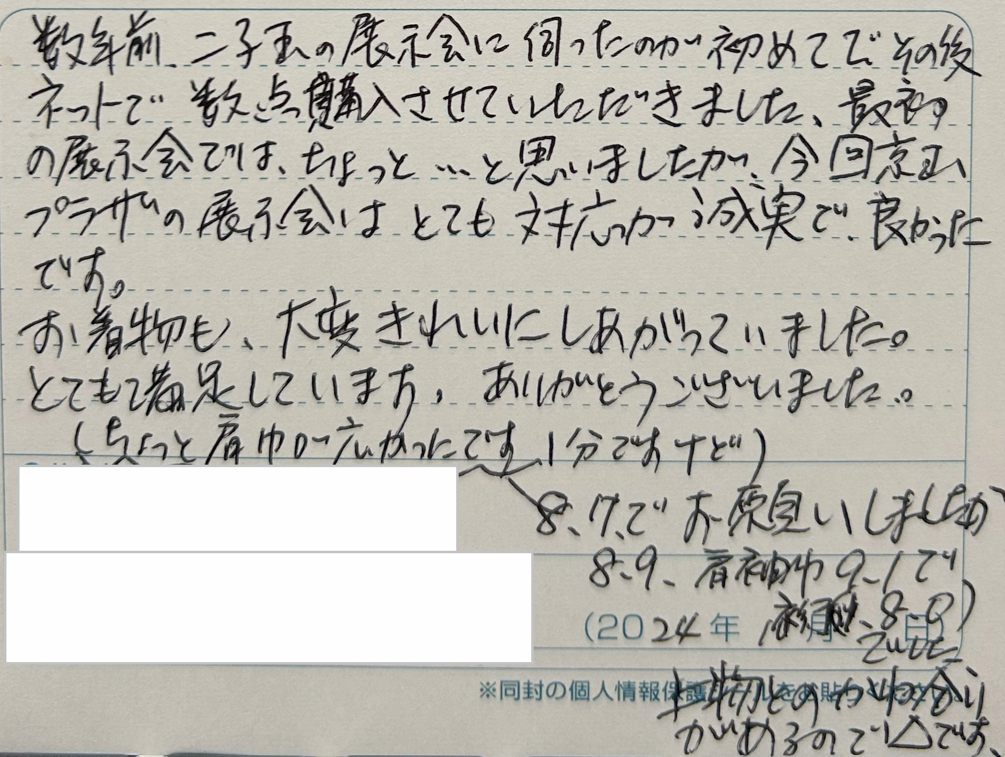 数年前、二子玉の展示会に伺ったのが初めてで、その後
ネットで数点購入させていただきました、最初
の展示会では、ちょっと…と思いましたが、今回京王
プラザの展示会はとても対応が誠実で、良かった
です。
お着物も、大変きれいにしあがっていました。
とても満足しています。ありがとうございました。
(ちょっと肩巾が広かったです、1分ですけど)
8.7.でお願いしましたが
8.9、肩袖巾9.1で
8.0)
でした
(2024年 月 日)
※同封の個人情報保護
物とのかね合い
があるので△です、